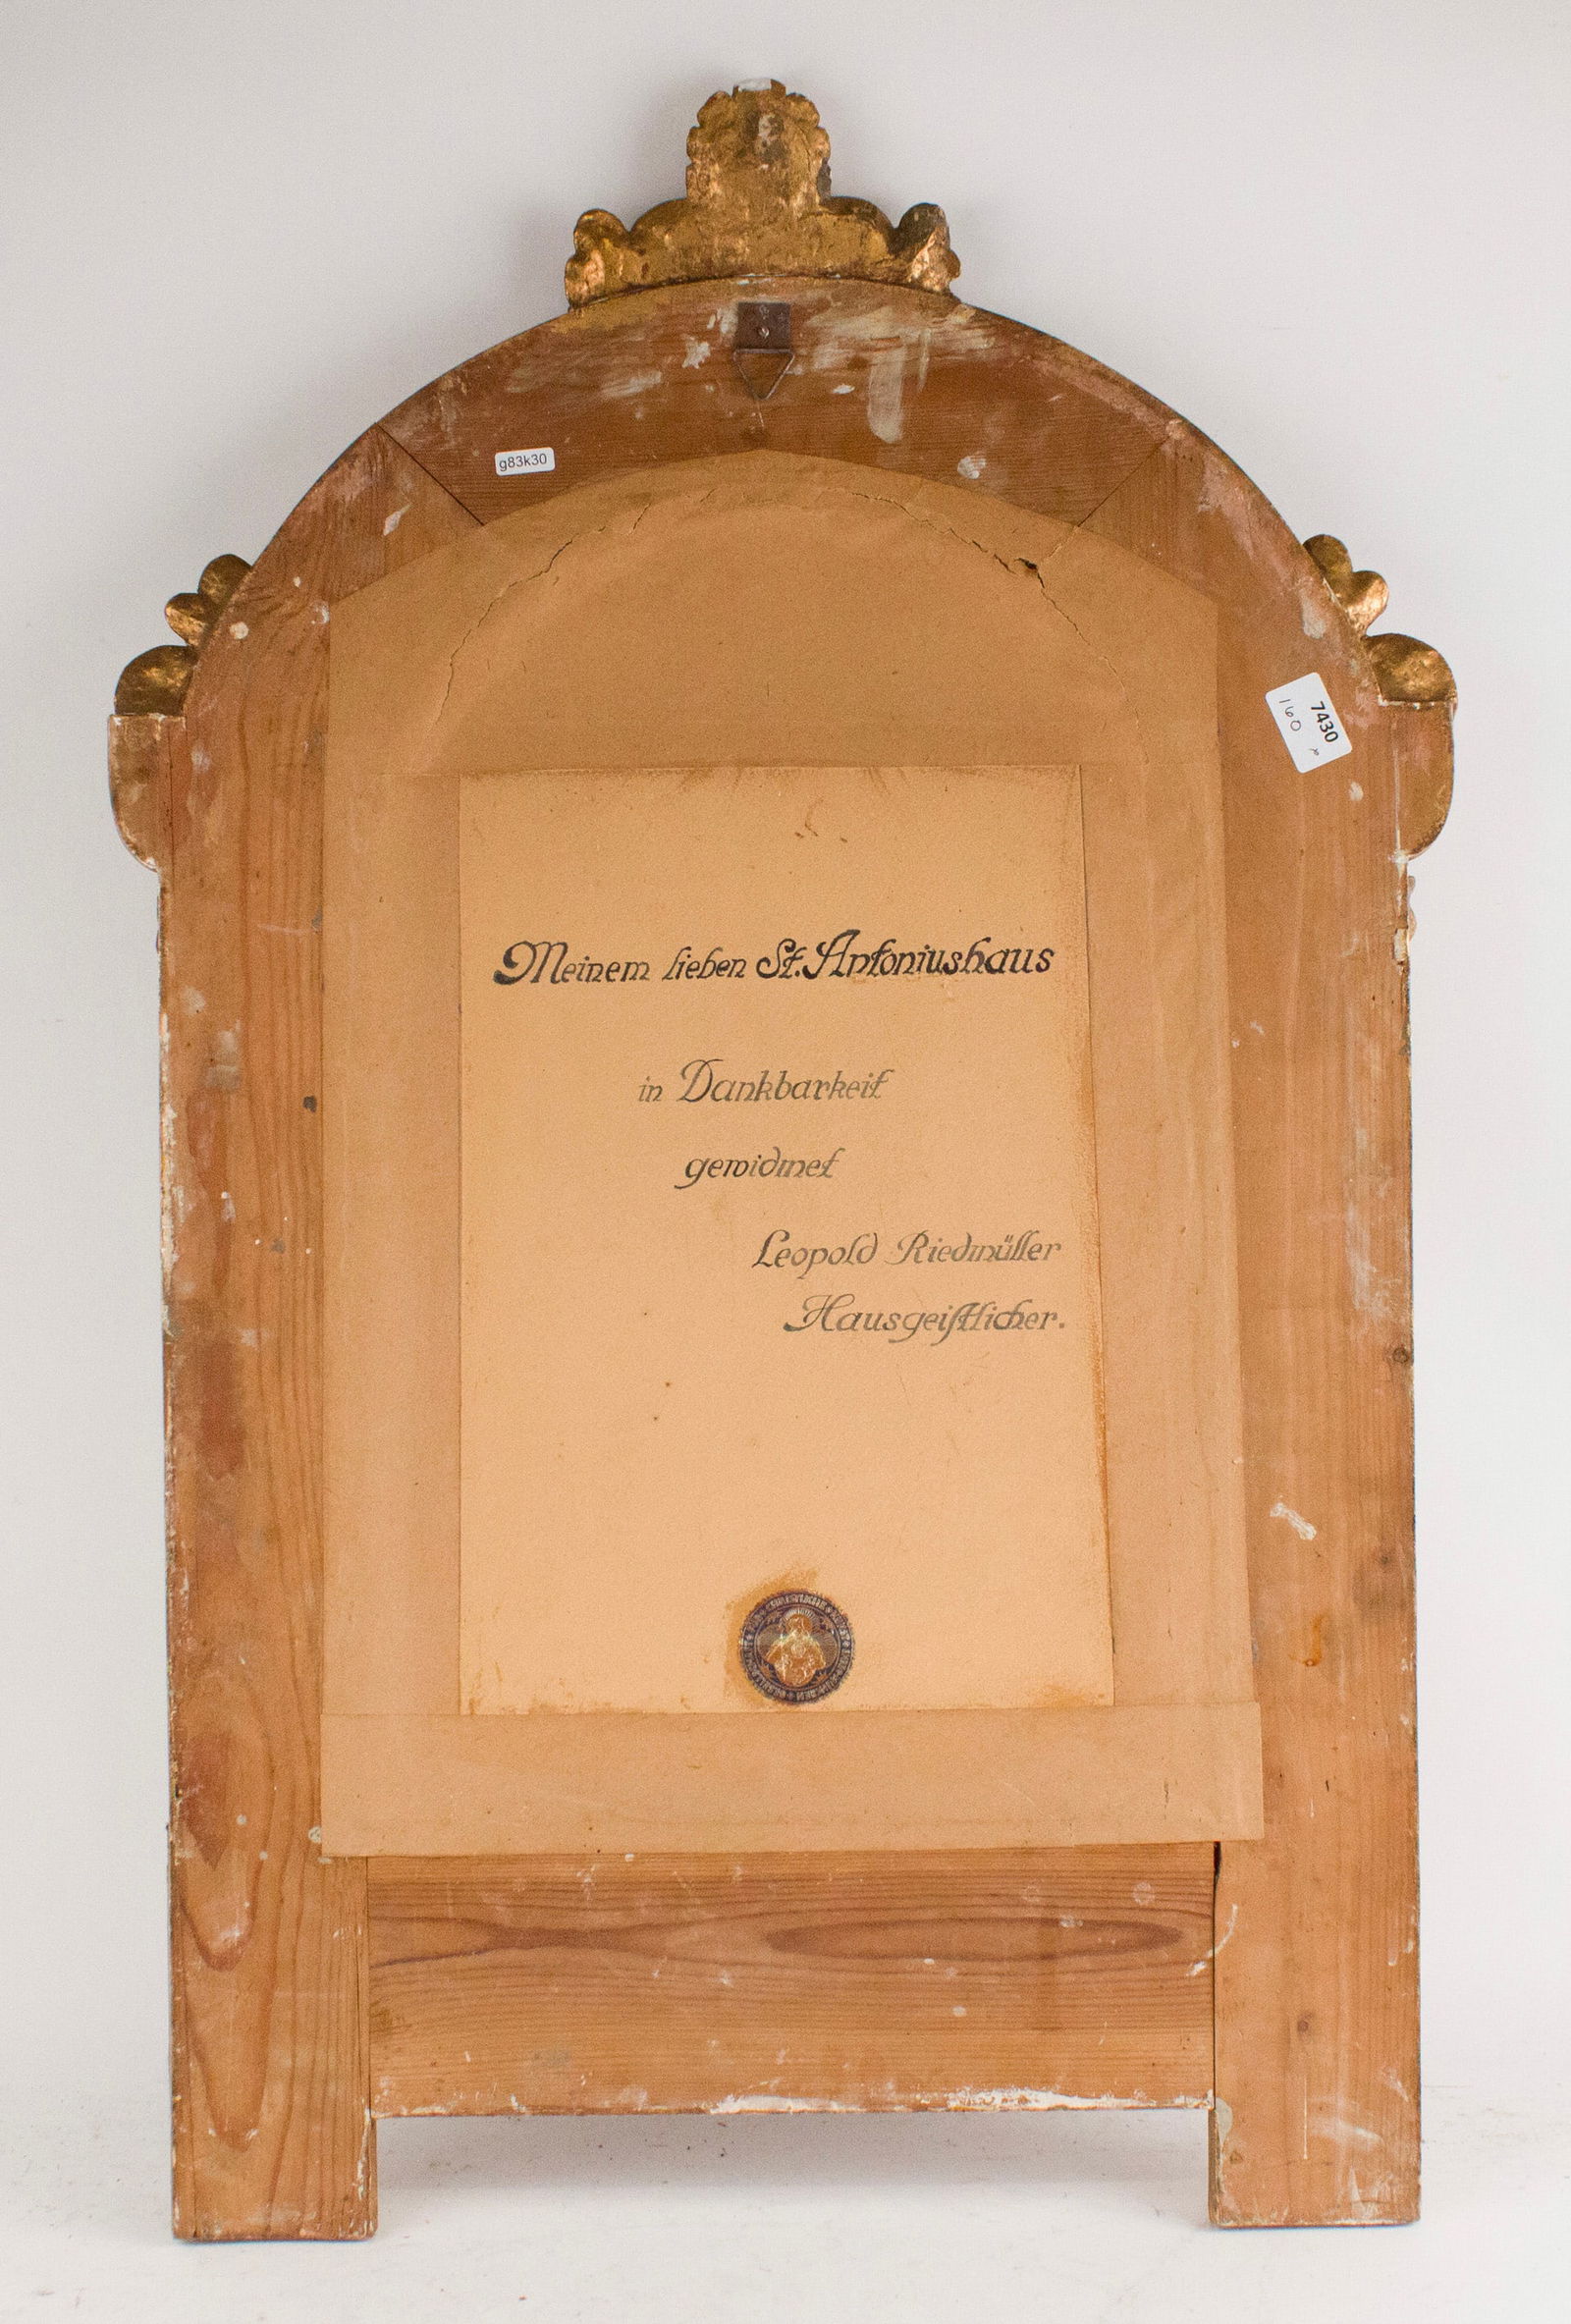 g83k30
7430
160
Meinem lieben St. Antoniushaus
in Dankbarkeit
gewidmet
Leopold Riedmüller
Hausgeistlicher.